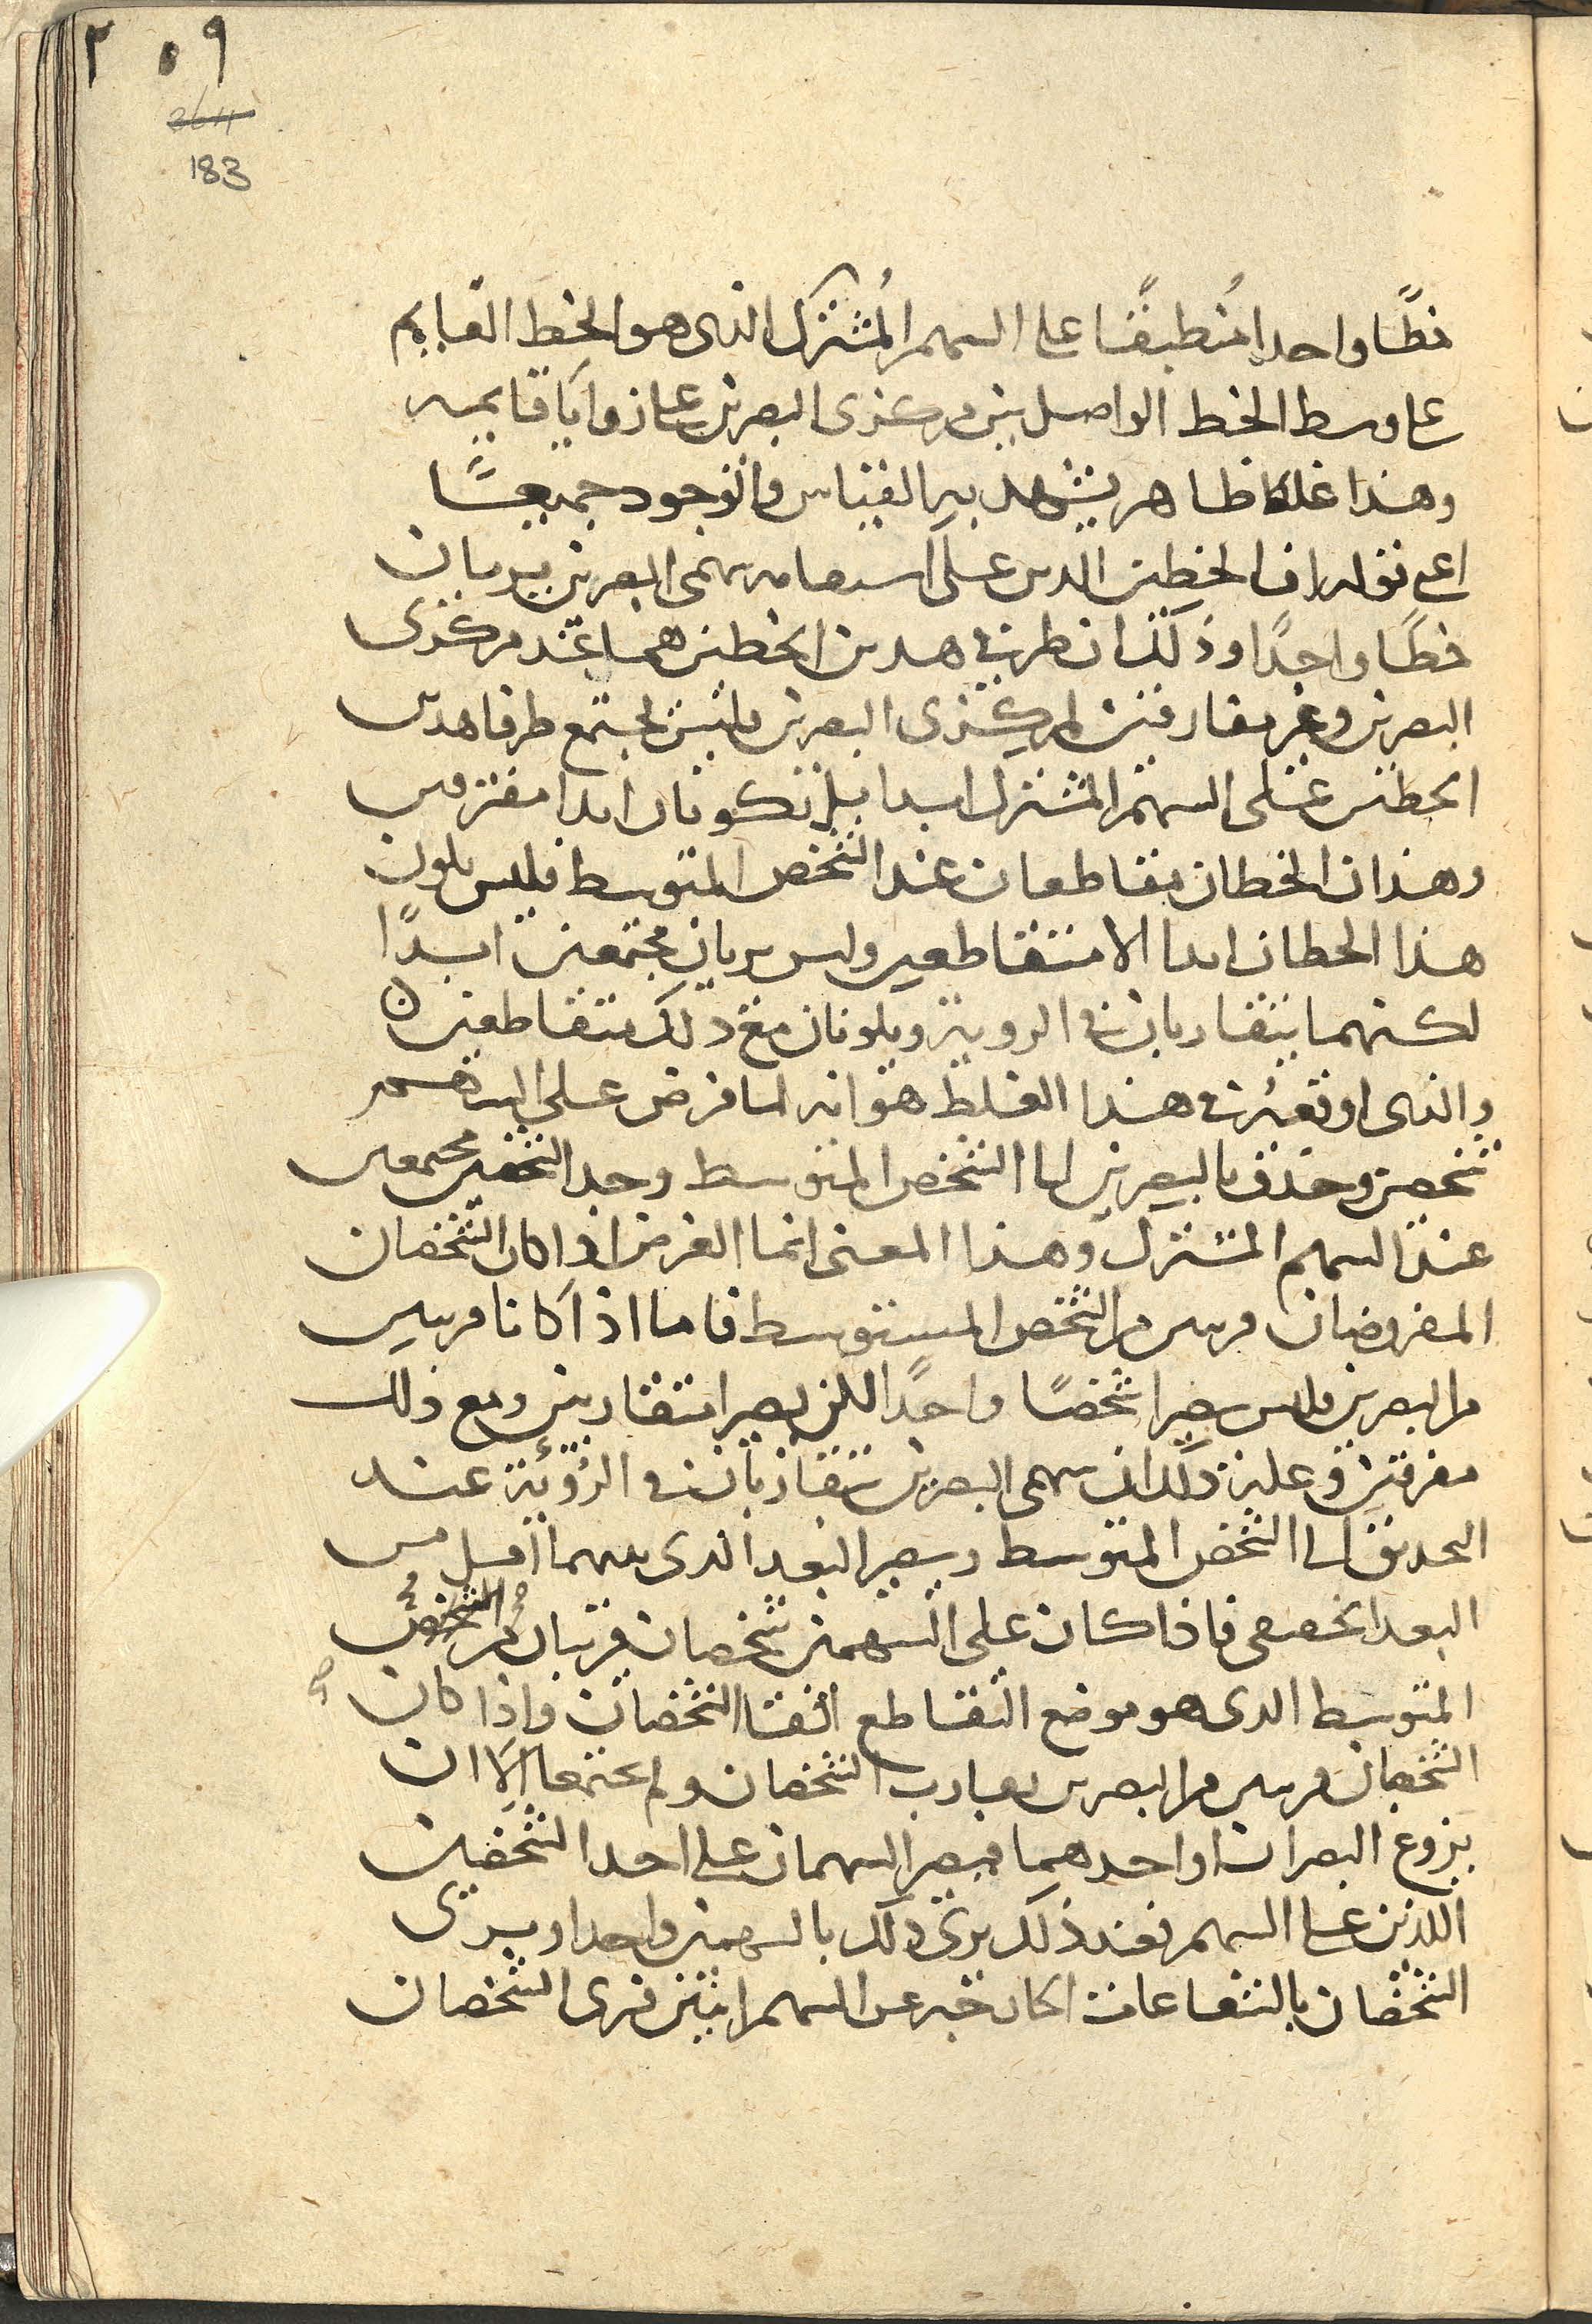 ٢٠٩
364
183
خطًا واحدا مُنطبقًا على السهم المُشترك الذى هو الخط القايم
على وسط الخط الواصل بين مركزى البصرين على زوايا قايمه
وهذا غلط ظاهر يشهد به القياس والوجود جميعًا
اعنى نقوله ان الخطين الدين على استقامه سهمى البصرين يريان
خطًا واحدًا وذلك ان طرفى هدين الخطين هما عند مركزى
البصرين وغير مفارقين لمركزى البصرين فليس يجتمع طرفا هدين
الخطين على السهم المشترك ابدا بل تكونان ابدا مفترقين
وهذان الخطان يتقاطعان عند الشخص المتوسط فليس يكون
هذا الخطان ابدا الا متقاطعين وليس يريان مجتمعين ابدًا
لكنهما يتقاربان فى الروية ويكونان مع ذلك متقاطعين ن
والذى اوقعه فى هذا الغلط هو انه لما فرض على السهم
شخصين وحدق بالبصرين الى الشخص المتوسط وجد الشخصين مجتمعين
عند السهم المشترك وهذا المعنى انما العرض اذا كان الشخصان
المفروضان قريبين من الشخص المتوسط فاما اذا كانا قريبين
من البصرين فليس يصيرا شخصًا واحدًا لكن يصيرا متقاربين ومع ذلك
مفرقين وعلة ذلك ان سهمى البصرين يتقاربان فى الرؤية عند
التحديق الى الشخص المتوسط ويصير البعد الدى بينهما اقل من
البعد الحقيقى فاذا كان على السهمين شخصان قريبان من الشخص
المتوسط الدى هو موضع التقاطع التقا الشخصان واذا كان
الشخصان قريبين من البصرين تقارب الشخصان ولم يجتمعا الا ان
يزوغ البصران او احدهما فيصير السهمان على احد الشخصين
اللذين على السهم فعند ذلك يرى ذلك بالسهمين واحدا ويرى
الشخصان بالشعاعات الخارجة عن السهم اثنين فترى الشخصان